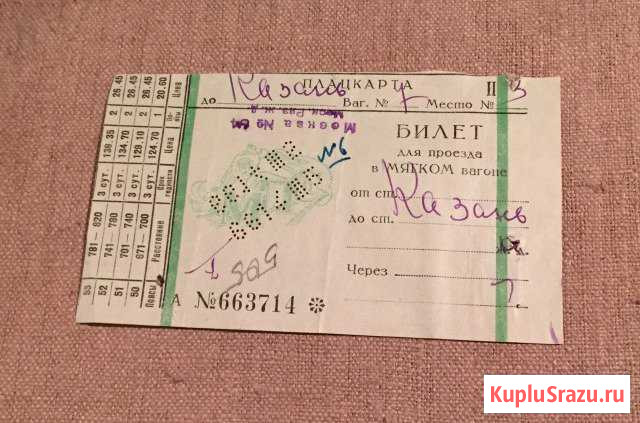 ПЛАЦКАРТА П
до Казань Ваг. № 7 Место № 3
Москва №
Моск. Ряз. ж.д.
№6
БИЛЕТ
для проезда
в МЯГКОМ вагоне
от ст.
до ст. Казань
Через
1
505
А №663714
Поясы Расстояние Срок годности Цена По- ясы Цена
50 671—700 3 сут. 124.70 1 20.60
51 701—740 3 сут. 129.10 2 26.45
52 741—780 3 сут. 134.70 2 26.45
53 781—820 3 сут. 139.35 2 26.45
KupluSrazu.ru